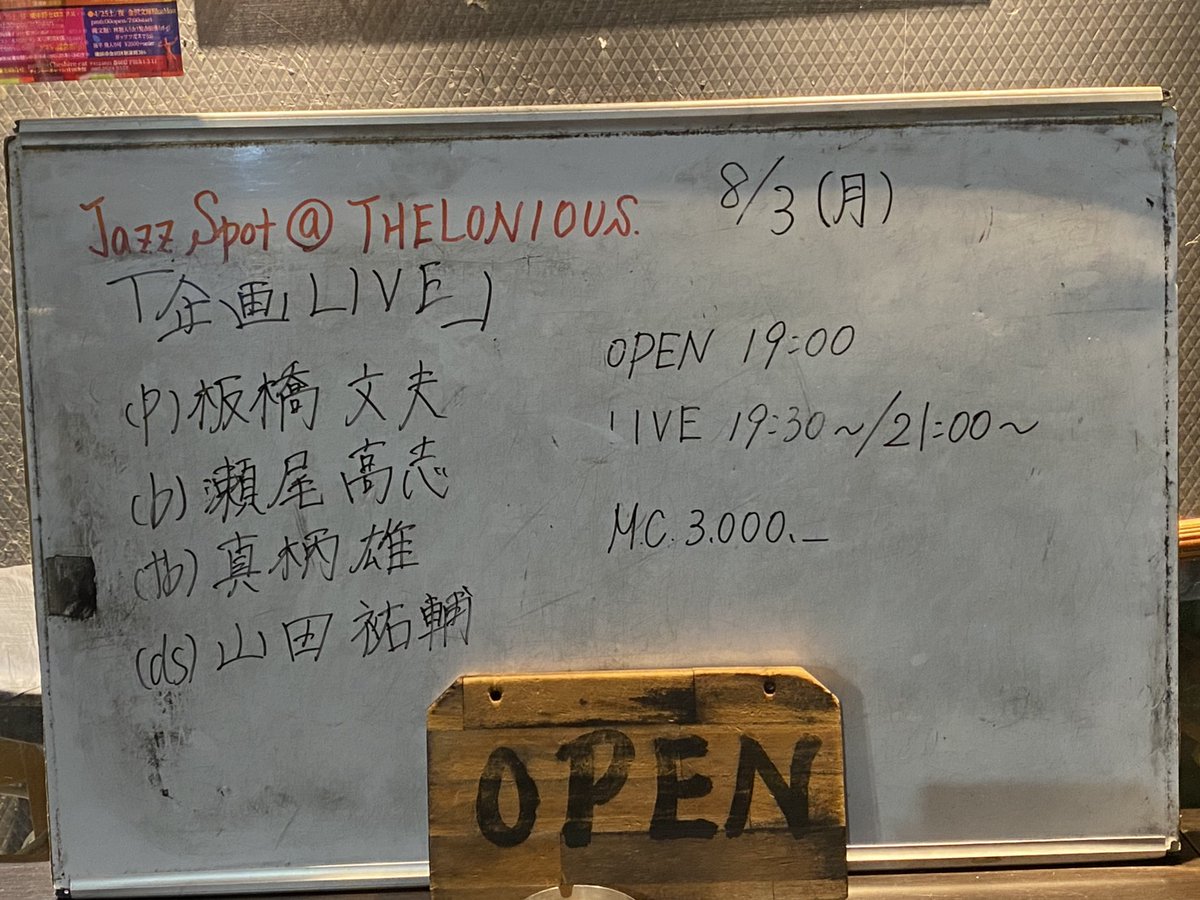 Jazz Spot @ THELONIOUS.
8/3 (月)
「企画LIVE」
(p) 板橋 文夫
(b) 瀬尾 高志
(tb) 真柄 雄
(ds) 山田 祐輔
OPEN 19:00
LIVE 19:30~/21:00~
M.C. 3.000._
OPEN